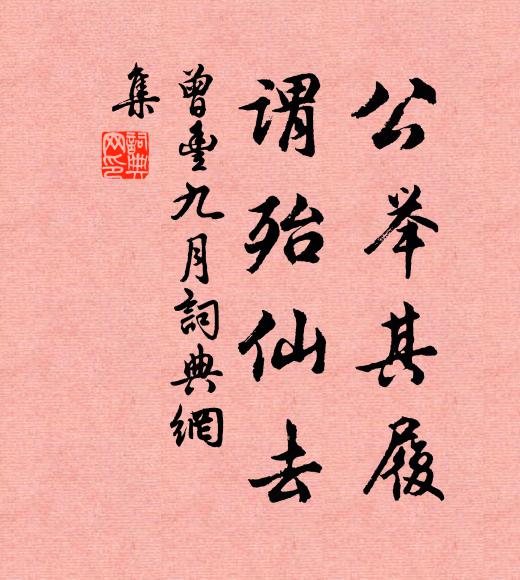 公举其履
谓殆仙去
曾丰九月詞典網
集
詞典
网印